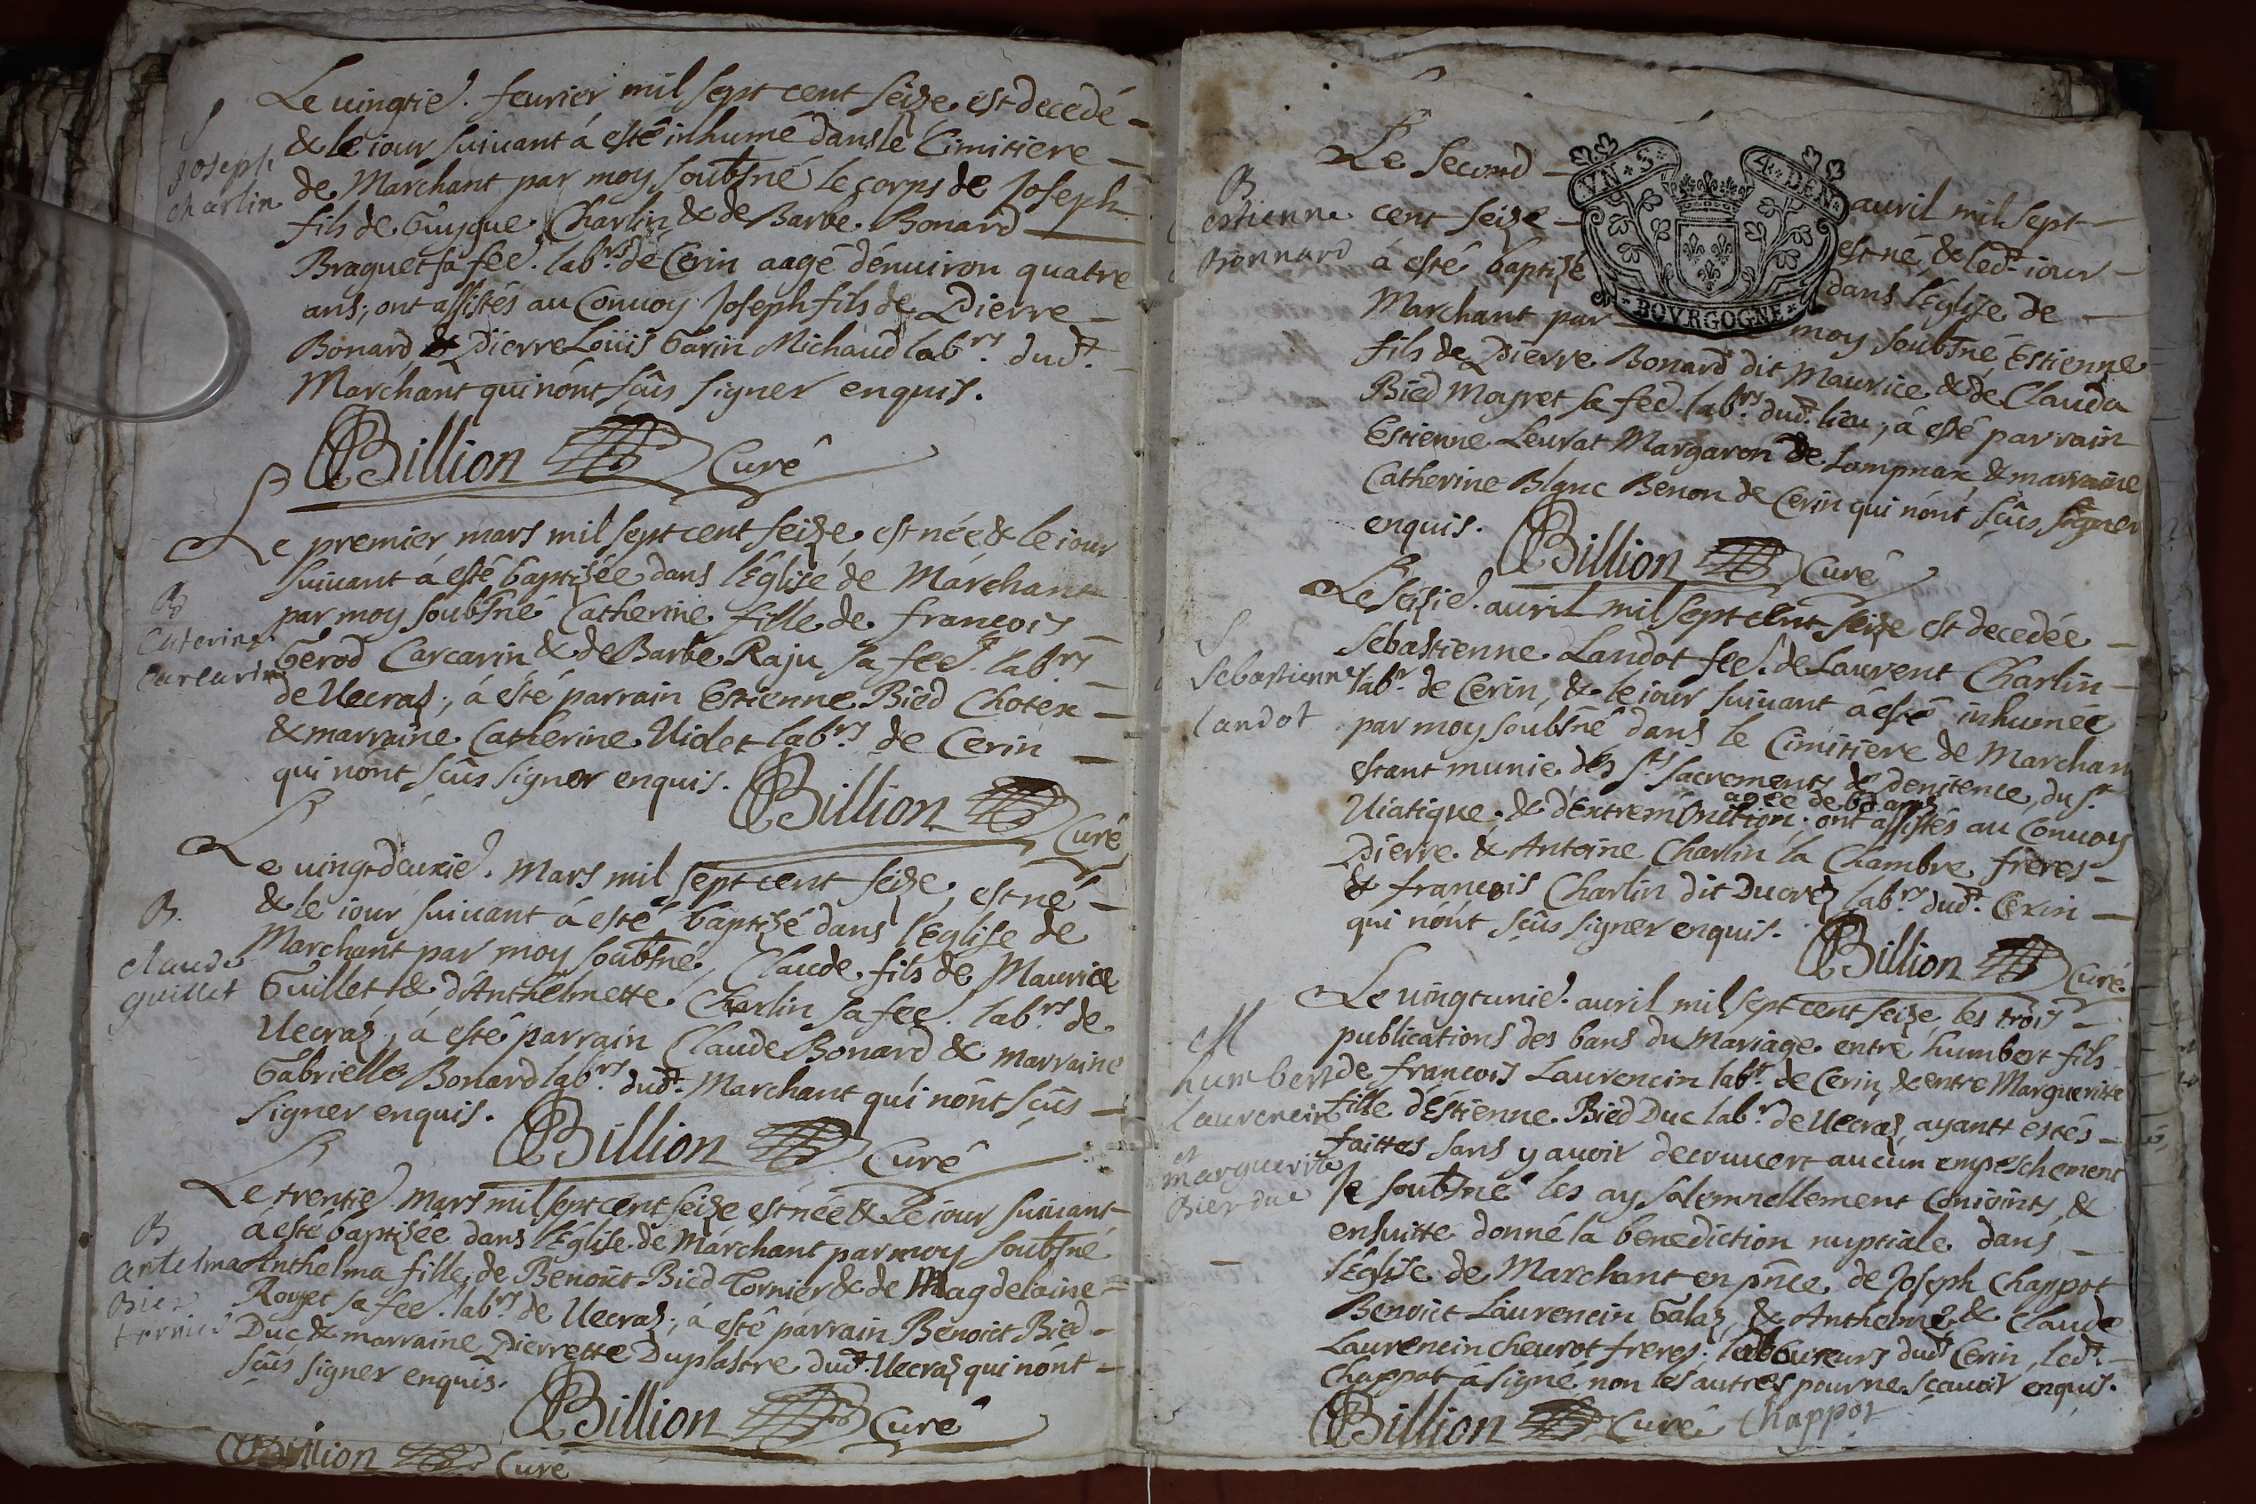 Le vingtie. feurier mil sept cent seize est decedé
& le iour suiuant à esté inhumé dans le Cimitiere
S
Joseph
charlin
de Marchant par moy soubsné le corps de Joseph
fils de Guygue Charlin & de Barbe Bonard
Braguet sa fee. labrs. de Cerin aagé dénuiron quatre
ans; ont assistés au Conuoy Joseph fils de Pierre
Bonard & Pierre Loüis Garin Michaud labrs. dudt.
Marchant qui nónt sçûs signer enquis.
Billion Curé
Le premier mars mil sept cent seize est née & le iour
suiuant à esté baptizée dans l'Eglise de Marchant
B
Caterine
Carcarin
par moy soubsné Catherine fille de françois
Gerod Carcarin & de Barbe Raju sa fee. labrs.
de Uecraz; à esté parrain Estienne Bied Chotex
& marraine Catherine Uiolet labrs. de Cerin
qui nont sçûs signer enquis.
Billion Curé
Le vingtdeuxie. Mars mil sept cent seize, est né
& le iour suiuant à esté baptizé dans l'Eglise de
B.
claude
guillet
Marchant par moy soubsné, Claude fils de Maurice
Guillet & d'Anthelmette Charlin sa fee. labrs. de
Uecraz; à esté parrain Claude Bonard & marraine
Gabrielle Bonard labrs. dudt. Marchant qui nónt sçûs
signer enquis.
Billion Curé
Le trentie. Mars mil sept cent seize est née & le iour suiuant
à esté baptizée dans l'Eglise de Marchant par moy soubsné
B
antelma
Bied
Anthelma fille de Benoict Bied Tornier & de Magdelaine
Rouget sa fee. labrs. de Uecraz; à esté parrain Benoict Bied
Duc & marraine Pierrette Duplastre dudt. Uecraz qui nónt
sçûs signer enquis.
Billion Curé
Billion Curé
VN S. 4 DEN
BOVRGOGNE
Le second auril mil sept
B
estienne
Bonnard
cent seize est né & ledt. iour
à esté baptizé dans l'Eglise de
Marchant par moy soubsné, Estienne
fils de Pierre Bonard dit Maurice & de Clauda
Bied Mayret sa fee. labrs. dudt. lieu; à esté parrain
Estienne Leurat Margaron de Lompnax & marraine
Catherine Blanc Benon de Cerin qui nónt sçûs signer
enquis.
Billion Curé
Le seizie. auril mil sept cent seize est decedée
S
Sebastienne
Landot
Sebastienne Landot fee. de Laurent Charlin
labr. de Cerin, & le iour suiuant à esté inhumée
par moy soubsné dans le Cimitiere de Marchan
estant munie des sts. sacrements de penitence, du st.
Uiatique & d'Extrem Onction. ont assistés au Conuoy
Pierre & Antoine Charlin la Chambre freres
& françois Charlin dit Ducrez labrs. dudt. Cerin
qui nónt sçûs signer enquis.
Billion Curé.
Le vingtunie. auril mil sept cent seize les trois
publications des bans du Mariage entre humbert fils
M
humbert
Laurencin
et
marguerite
Bied duc
de françois Laurencin labr. de Cerin & entre Marguerite
fille d'Estienne Bied Duc labr. de Uecraz, ayantt estés
faittes sans y auoir decouuert aucun empeschement
Je soubsné les ay solemnellement conioints, &
ensuitte donné la benediction nuptiale dans
l'Eglise de Marchant en pnce. de Joseph Chappot
Benoict Laurencin Galaz, & Anthelme & Claude
Laurencin cheurot freres; laboureurs dudt. Cerin, ledt.
Chappot à signé, non les autres pour ne sçauoir enquis.
Billion Curé Chappot